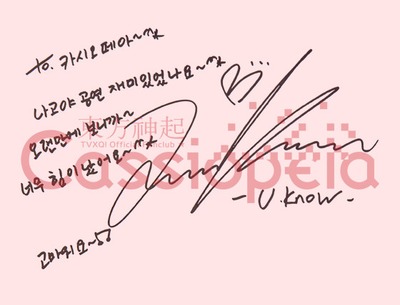 to. 카시오페아~^^
나고야 공연 재미있었나요~^^
오랜만에 보니까~
너무 힘이 났어요~^^
고마워요~!!
東方神起
TVXQ! Official Fanclub
Cassiopeia
- U.Know. -